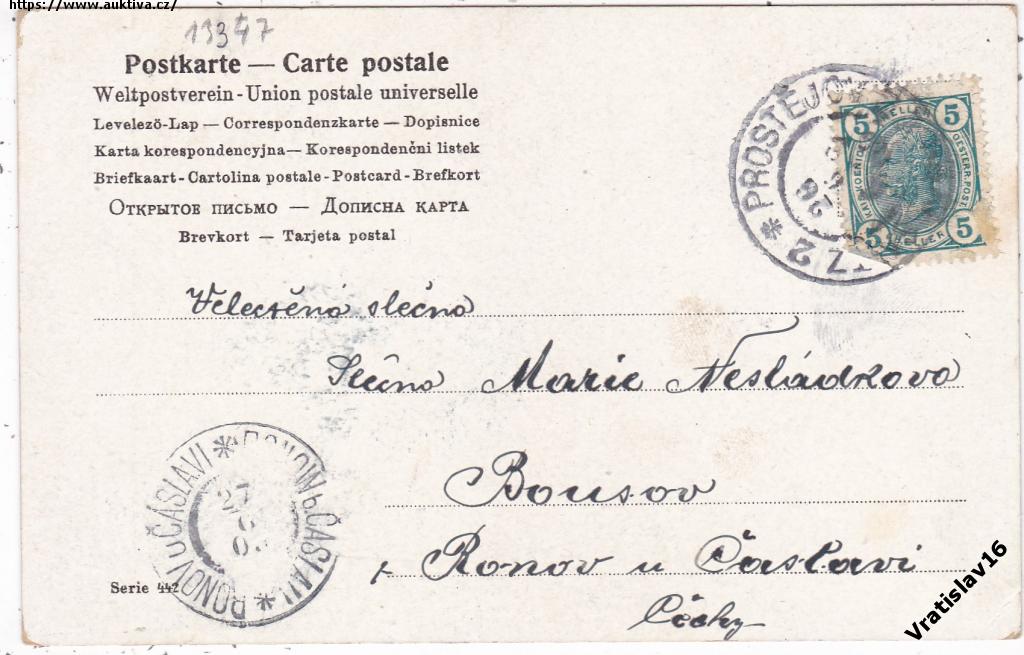 https://www.auktiva.cz/
13347
Postkarte — Carte postale
Weltpostverein - Union postale universelle
Levelező-Lap — Correspondenzkarte — Dopisnice
Karta korespondencyjna — Korespondenčni listek
Briefkaart - Cartolina postale - Postcard - Brefkort
Открытое письмо — Дописна карта
Brevkort — Tarjeta postal
PROSTĚJOV
TZ 2 *
26
5 HELLER 5
OESTERR. POST
5 HELLER 5
Velectěná slečna
Slečna Marie Nesládkova
Bousov
Ronov u Čáslavi
Čechy
RONOV U ČÁSLAVI * RONOW b ČASLAU *
Serie 442
Vratislav16